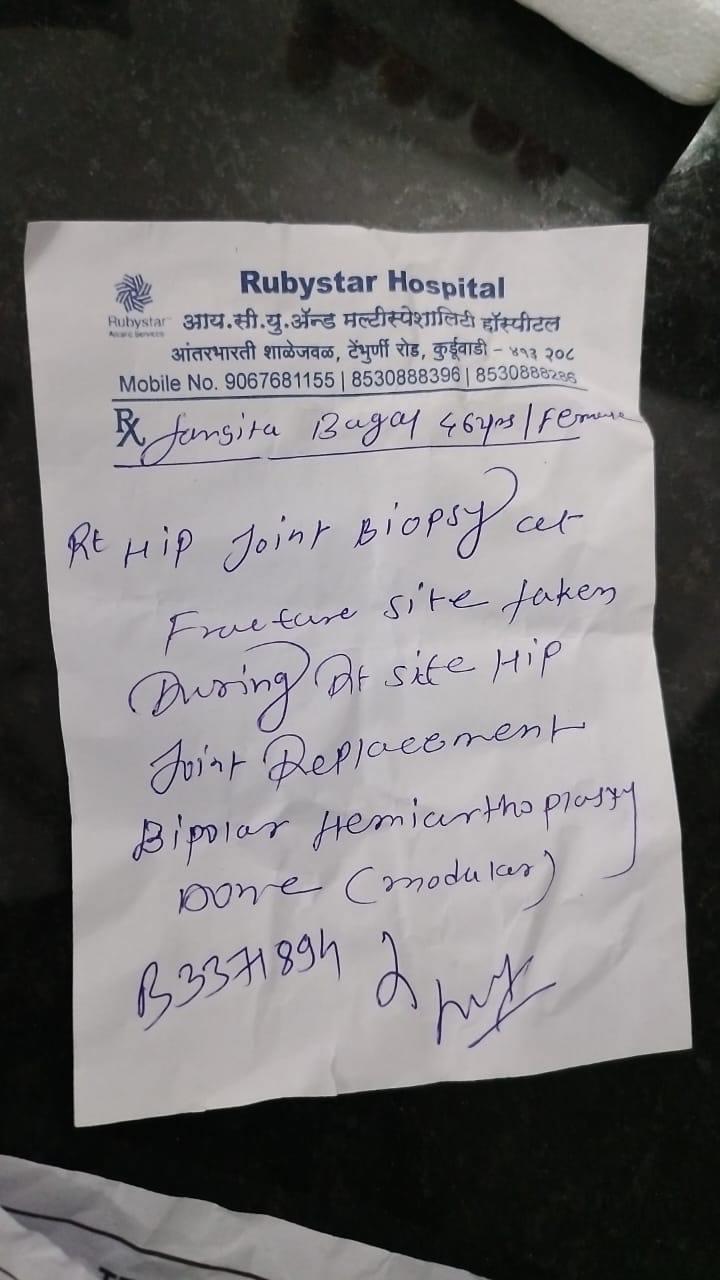 Rubystar Hospital
Rubystar
आय.सी.यु.ॲन्ड मल्टीस्पेशालिटी हॉस्पीटल
आंतरभारती शाळेजवळ, टेंभुर्णी रोड, कुर्डूवाडी – ४१३ २०८
Mobile No. 9067681155 | 8530888396 | 8530888286
Rx Sangita Bagal 46yrs/Female
Rt Hip Joint Biopsy at
Fracture site taken
During Rt site Hip
Joint Replacement
Bipolar Hemiarthoplasty
Done (modular)
B3371894